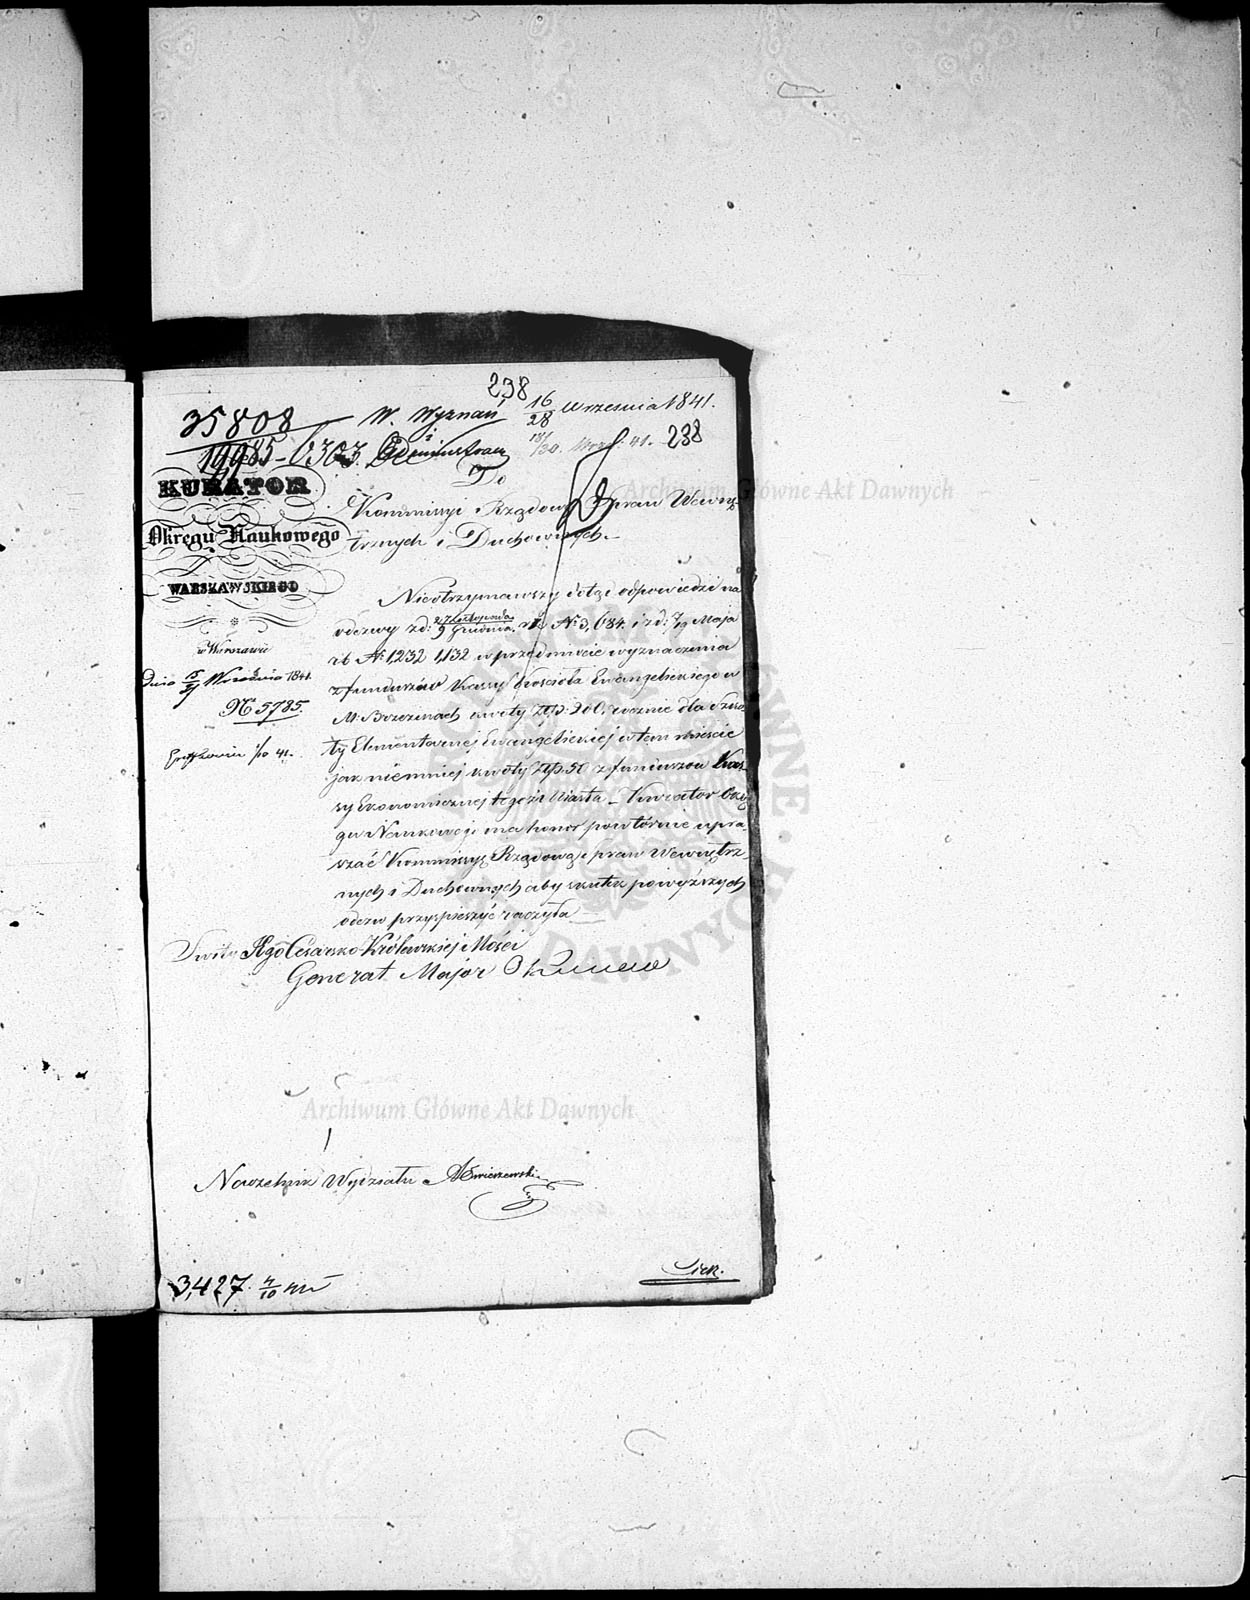 238
35808 W. Wyznań 16/28 Września 1841.
19985-6303. 18/30 Wrzś. 41. 238
KURATOR
Okręgu Naukowego
WARSZAWSKIEGO
w Warszawie
Dnia Września 1841.
N 5785.
Do
Kommissyi Rządowej Spraw Wewnę-
trznych i Duchownych.
Nieotrzymawszy dotąd odpowiedzi na
odezwy z d: 27 Listopada / 9 Grudnia r. z. N: 3,684. i z d: 7/19 Maja
r b N: 1,232 1,132 w przedmiocie wyznaczenia
z funduszów Kassy Kościoła Ewangelickiego w
M: Brzezinach kwoty Złp: 200. rocznie dla Szko-
ły Elementarnej Ewangelickiej w tem mieście
jak niemniej kwoty Złp. 50 z funduszów Kas-
sy Ekonomicznej tegoż Miasta – Kurator Okrę-
gu Naukowego ma honor powtórnie upra-
szać Kommissyę Rządową Spraw Wewnętrz-
nych i Duchownych aby skutek powyższych
odezw przyspieszyć raczyła
Świty Jego Césarsko-Królewskiej Mości
Generał Major Okuniew
Naczelnik Wydziału
3,427. 4/10
Archiwum Główne Akt Dawnych
Archiwum Główne Akt Dawnych